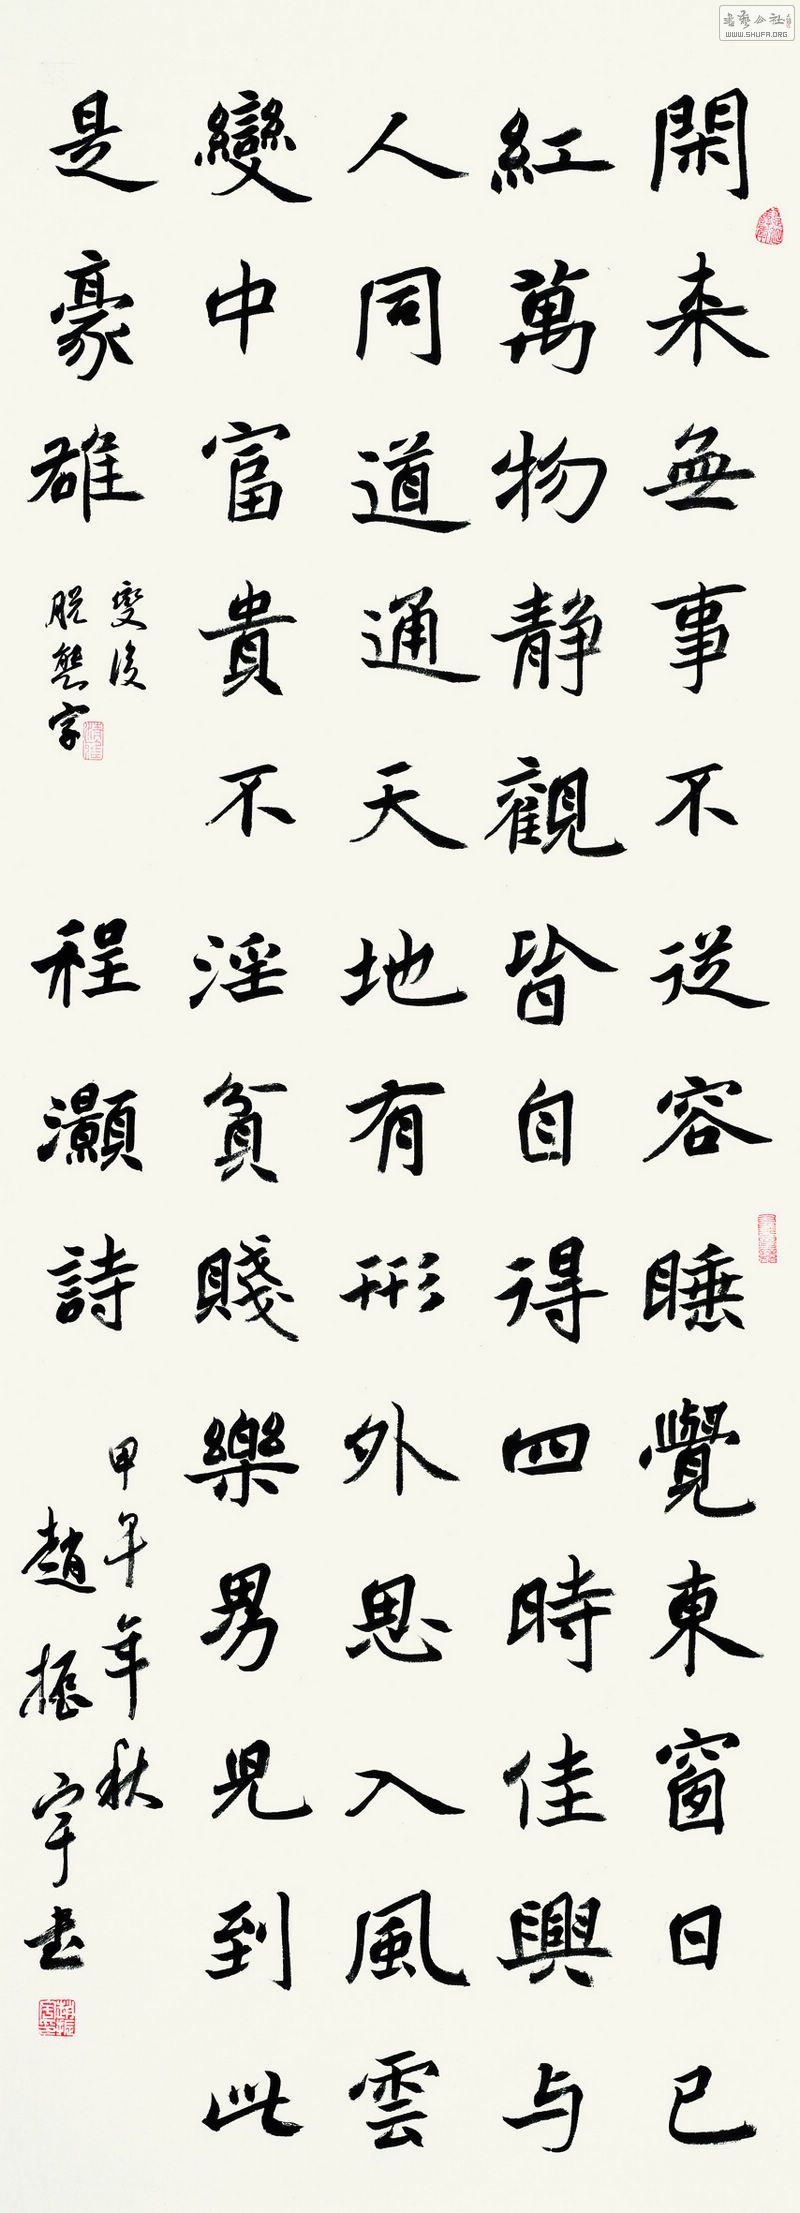 書藝公社
WWW.SHUFA.ORG
閑来無事不從容睡覺東窗日已
紅萬物靜觀皆自得四時佳興与
人同道通天地有形外思入風雲
變中富貴不淫貧賤樂男児到此
是豪雄
變後
脫態字
程灝詩
甲午年秋
趙振宇书